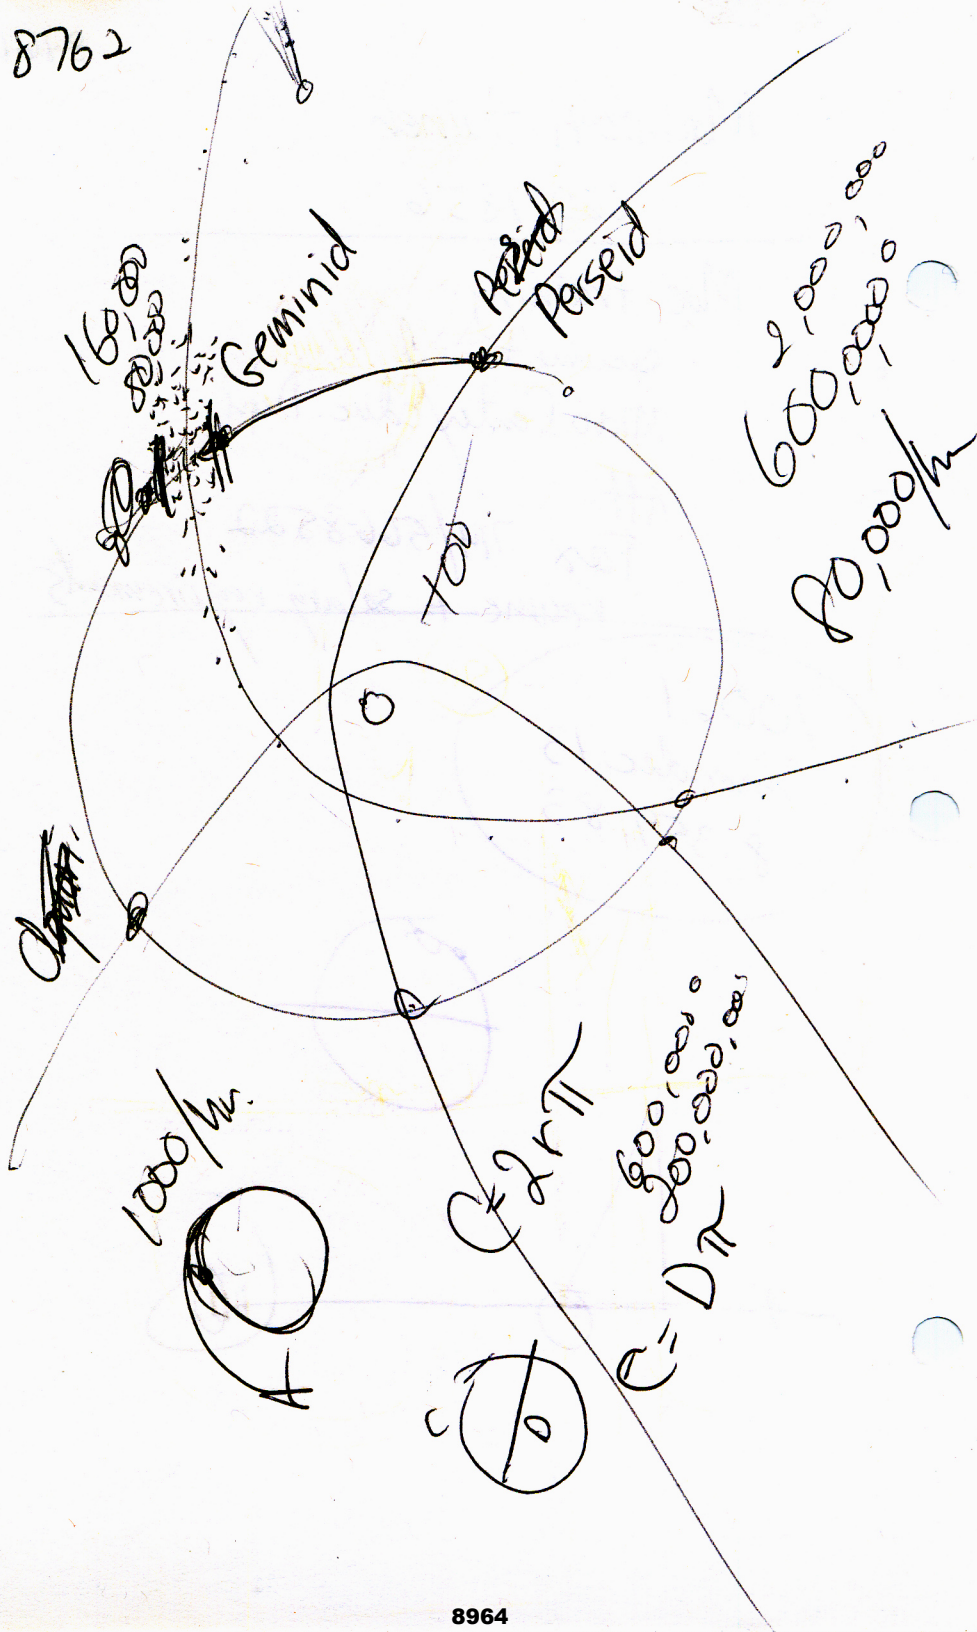 8762
160,000
80,000
Geminid
Perseid
Perseid
2,000,000
600,000,000
80,000/hr
100
1000/hr.
A
C = 2rπ
600,000,0
200,000,000
C = Dπ
C
D
8964